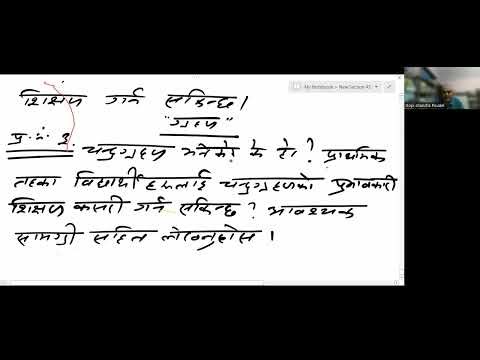 शिक्षण गर्न सकिन्छ।
"ग्रहण"
My Notebook > New Section 43
प्र.नं. ३. चन्द्रग्रहण भनेको के हो ? प्राथमिक
तहका विद्यार्थीहरूलाई चन्द्रग्रहणको प्रभावकारी
शिक्षण कसरी गर्न सकिन्छ ? आवश्यक
सामग्री सहित लेख्नुहोस ।